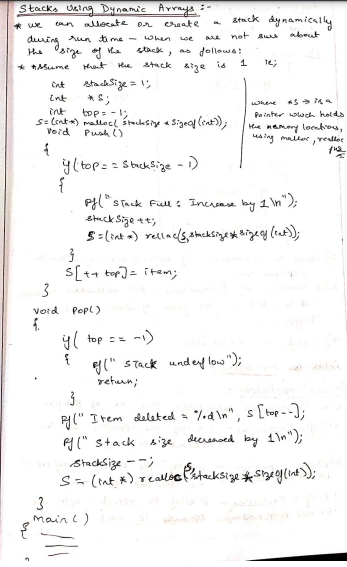 Stacks Using Dynamic Arrays :-
* we can allocate or create a stack dynamically
during run time – when we are not sure about
the size of the stack, as follows:
* Assume that the stack size is 1 ie;
int stackSize = 1;
int *S;
int top = -1;
S=(int*) malloc( stackSize * Sizeof(int));
where *S → is a
pointer which holds
the memory locations,
using malloc, realloc
Void Push()
{
if(top == StackSize - 1)
{
Pf("Stack Full : Increase by 1\n");
stackSize ++;
S=(int *) relloc(S,stackSize*sizeof(int));
}
S[++top]= item;
}
void Pop()
{
if( top == -1)
{ pf(" Stack underflow");
return;
}
Pf(" Item deleted = %d\n", S[top--];
Pf(" Stack size decreased by 1\n");
StackSize --;
S = (int *) realloc(S,stackSize * Sizeof(int));
}
main()
{